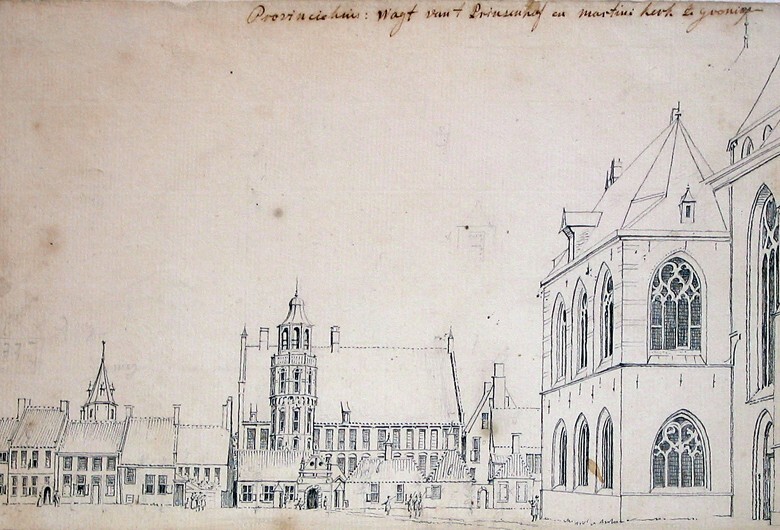 Provinciehuis: Wagt van't Prinsenhof en martini kerk te groninge